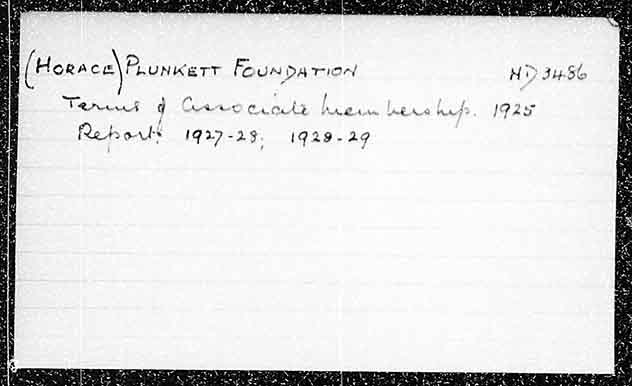 (HORACE) PLUNKETT FOUNDATION HD 3486
Terms of Associate Membership. 1925
Reports 1927-28; 1928-29